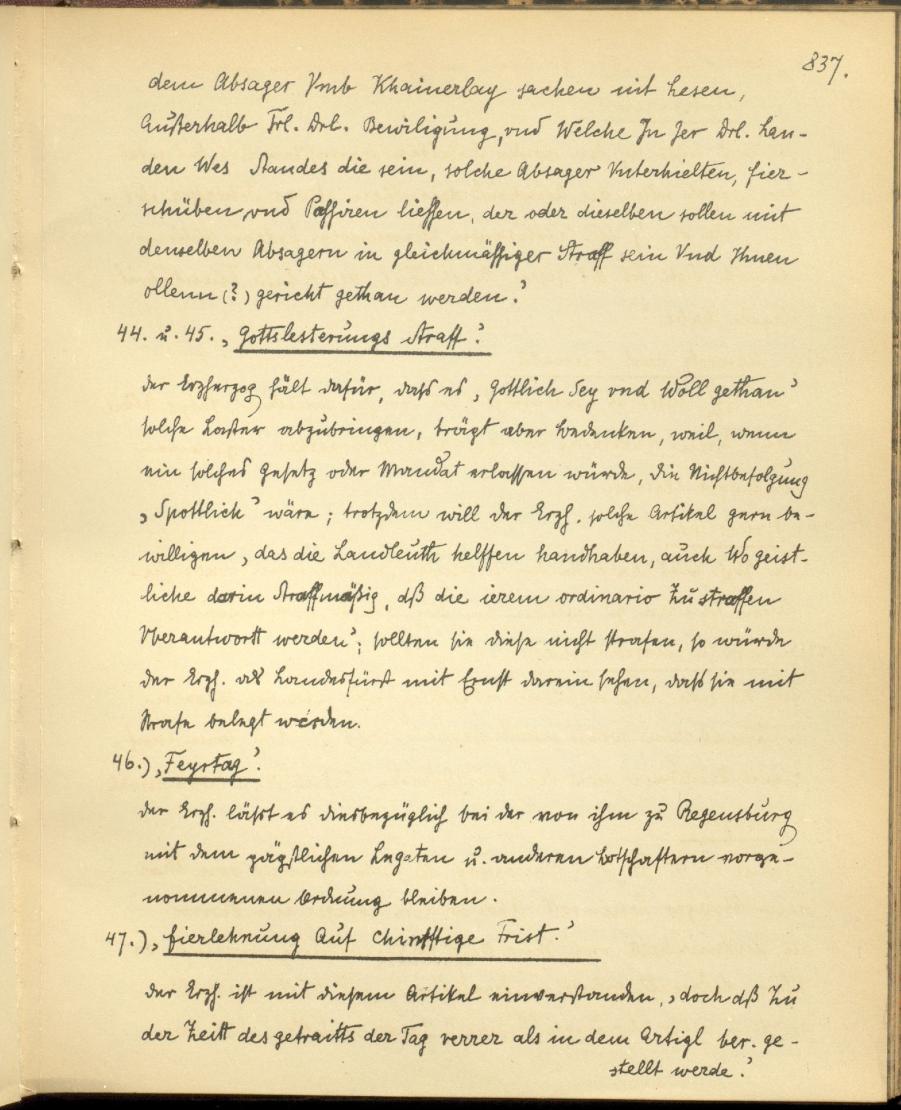 837.
dem Absager Vmb Khainerlay sachen nit Lesen,
Außerhalb Frl. Drl. Bewiligung, vnd Welche In Jer Drl. Lan-
den Wes Standes die sein, solche Absager Vnterhielten, fier-
schüben vnd Passiren liessen, der oder dieselben sollen mit
denselben Absagern in gleichmässiger Straff sein Vnd Ihnen
ollenn (?) gericht gethan werden.'
44. u. 45. ‚Gottslesterungs Straff.'
der Erzherzog hält dafür, dass es ‚Gottlich Sey vnd Woll gethan'
solche Laster abzubringen, trägt aber Bedenken, weil, wenn
ein solches Gesetz oder Mandat erlassen würde, die Nichtbefolgung
‚Spottlich' wäre; trotzdem will der Erzh. solche Artikel gern be-
willigen, ‚das die Landleuth helffen handhaben, auch Wo geist-
liche darin Straffmäßig, dß die ierem ordinario Zu straffen
Vberantwortt werden'; sollten sie diese nicht strafen, so würde
der Erzh. als Landesfürst mit Ernst darein sehen, dass sie mit
Strafe belegt werden.
46.) ‚Feyrtag'.
der Erzh. lässt es diesbezüglich bei der von ihm zu Regensburg
mit dem päpstlichen Legaten u. anderen Botschaftern vorge-
nommenen Ordnung bleiben.
47.) ‚fierlehnung Auf Chinfftige Frist.'
der Erzh. ist mit diesem Artikel einverstanden, ‚doch dß Zu
der Zeitt des getraitts der Tag verrer als in dem Artigl ber. ge-
stellt werde.'